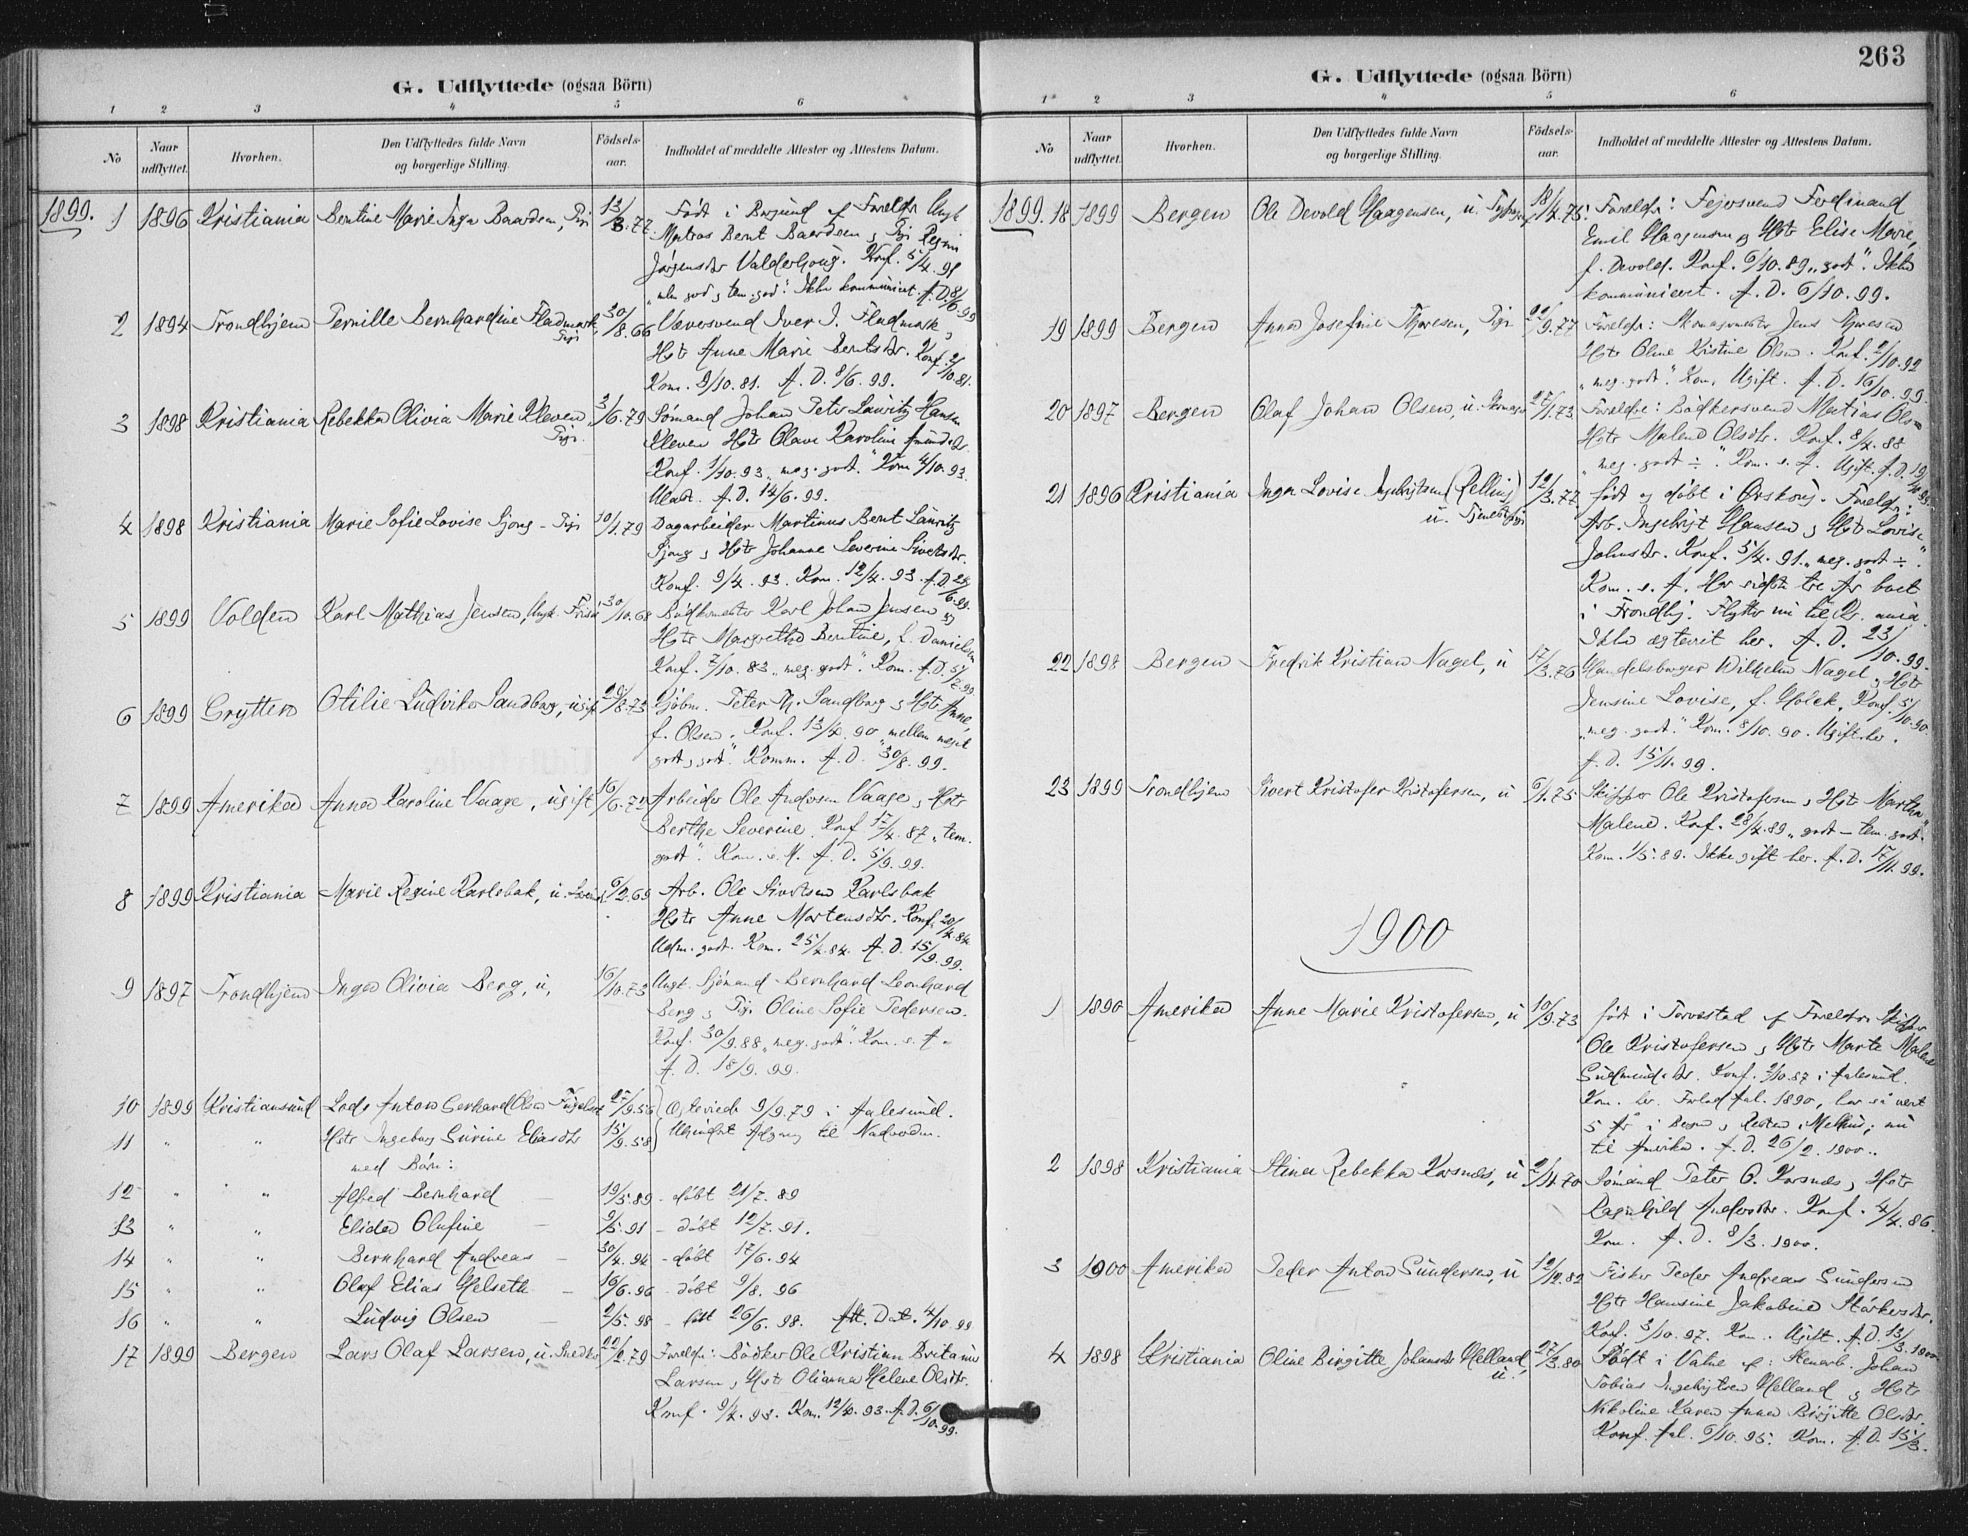 263
G. Udflyttede (ogsaa Börn)
1 2 3 4 5 6
No Naar udflyttet. Hvorhen. Den Udflyttedes fulde Navn og borgerlige Stilling. Födsels-aar. Indholdet af meddelte Attester og Attestens Datum.
1899. 1 1896 Kristiania Bentine Marie Inga Baardsen, Pige 13/3.77 Født i Borgund af Foreldre Ungk
Matros Bernt Baardsen og Pige
Jørgensdtr Valderhoug. Konf. 5/4.91
Ikke kommuniceret. A.D. 8/6.99
2 1894 Trondhjem Pernille Bernhardine Fladmark, Pige 30/8.66 Væversvend Iver I. Fladmark,
Hstr Anne Marie Berntsdtr. Konf. 2/10.81.
Kom. 9/10.81. A.D. 9/6.99.
3 1898 Kristiania Rebekka Olivia Marie Kleven, Pige. 3/6.79 Sømand Johan Peter Lauritz Hansen
Kleven Hstr Olave Karoline
Konf. 1/10.93. meg. godt." Kom. 4/10.93.
A.D. 14/6.99.
4 1898 Kristiania Marie Sofie Lovise Gjong - Pige 10/1.79 Dagarbeider Martinus Bernt Lauritz
Hstr Johanne Severine Sivertsdtr.
Konf. 9/4.93. Kom. 12/4.93. A.D. 28/6.99.
5 1899 Volden Karl Mathias Jensen, Ungk. 30/10.68 Bødkermester Karl Johan Jensen og
Hstr Margrethe Bentine, f. Danielsen
Konf. 7/10.83 "meg. godt". Kom. A.D. 5/7.99
6 1899 Grytten Otilie Ludvika Sandborg, ugift 29/8.73 Kjøbm. Peter M. Sandborg og Hstr Anne,
f. Olsen. Konf. 13/4.90 "mellem meget
godt og godt". Komm. A.D. 30/8.99.
7 1899 Amerika Anna Karoline Vaage, ugift 16/6.72 Arbeider Ole Andersen Vaage og Hstr
Berthe Severine. Konf 17/4.87 "tem.
godt". Kom. s.M. A.D. 5/9.99.
8 1899 Kristiania Marie Regine Karlsbak, u. 6/2.69 Arb. Ole Sivertsen Karlsbak
Hstr Anne Mortensdtr. Konf. 20/4.84
Udm. godt. Kom. 25/4.84. A.D. 15/9.99.
9 1897 Trondhjem Inga Olivia Berg, u. 16/10.73 Ungk. Sjømand Bernhard Leonhard
Berg og Pige Oline Sofie Pedersen.
Konf. 30/9.88 "meg. godt". Kom. s. A.
A.D. 18/9.99.
10 1899 Kristiansund Lods Anton Gerhard Olsen 27/9.56 Ægteviede 9/9.79 i Aalesund.
11 " " Hstr Ingeborg Surine Eliasdtr 15/9.58 Uhindret Adgang til Nadveren.
med Børn:
12 " " Alfred Bernhard — 19/5.89 - døbt 21/7.89
13 " " Elida Olufine — 9/5.91 - døbt 12/7.91.
14 " " Bernhard Andreas — 30/4.94 - døbt 17/6.94
15 " " Olaf Elias Helseth — 16/6.96 - døbt 9/8.96
16 " " Ludvig Olsen — 2/5.98 - døbt 26/6.98. Att. Dat. 4/10.99
17 1899 Bergen Lars Olaf Larsen, u. Snedker 22/2.79 Foreldre: Bødker Ole Kristian Britanus
Larsen og Hstr Olianna Helene Olsdtr.
Konf. 9/4.93. Kom. 12/4.93. A.D. 6/10.99.
G. Udflyttede (ogsaa Börn)
1 2 3 4 5 6
No Naar udflyttet. Hvorhen. Den Udflyttedes fulde Navn og borgerlige Stilling. Födsels-aar. Indholdet af meddelte Attester og Attestens Datum.
1899. 18 1899 Bergen Ole Devold Haagensen, u. 18/4.75 Foreldre: Ferdinand
Emil Haagensen og Hstr Elise Marie,
f. Devold. Konf. 6/10.89 "godt". Ikke
kommuniceret. A.D. 6/10.99.
19 1899 Bergen Anna Josefine Thoresen, Pige 22/9.77 Foreldre: Skomagermester Jens Thoresen
Hstr Oline Kristine Olsen. Konf. 2/10.92
"meg. godt". Kom. Ugift. A.D. 16/10.99
20 1897 Bergen Olaf Johan Olsen, u. 27/1.73. Foreldre: Bødkersvend Matias Olsen
Hstr Malene Olsdtr. Konf. 8/4.88
"meg. godt ÷". Kom. s. A. Ugift. A.D. 19/10.99.
21 1896 Kristiania Inga Lovise Ingebrigtsen (Relling) u. Tjenestepige 12/3.77 født og døbt i Ørskoug. Foreldre:
Arb. Ingebrigt Hansen og Hstr Lovise
Johnsdtr. Konf. 5/4.91. "meg. godt ÷".
Kom. s. A. Har sidste tre År boet
i Trondhj. Flytter nu til Kr.ania.
Ikke ægteviet her. A.D. 23/10.99.
22 1898 Bergen Fredrik Kristian Nagel, u 17/3.76 Handelsborger Wilhelm Nagel og Hstr
Jensine Lovise, f. Holck. Konf. 5/10.90.
"meg. godt". Kom. 8/10.90. Ugift her.
A.D. 15/11.99.
23 1899 Trondhjem Sivert Kristofer Kristofersen, u 6/1.75 Skipper Ole Kristofersen og Hstr Martha
Malene. Konf. 28/4.89 "godt — tem. godt."
Kom. 1/5.89. Ikke gift her. A.D. 17/11.99.
1900
1 1890 Amerika Anne Marie Kristofersen, u 10/9.73 født i Torvestad af Foreldre Skipper
Ole Kristofersen og Hstr Marte Malene
Gudmundsdtr. Konf. 2/10.87 i Aalesund.
Kom. her. Forlod Aal. 1890, har så vært
5 År i Bergen, Resten i nu
til Amerika. A.D. 26/2.1900.
2 1898 Kristiania Stina Rebekka Korsnes, u 2/11.70 Sømand Peter O. Korsnes og Hstr
Ragnhild Andersdtr. Konf. 4/4.86.
Kom. A.D. 8/3.1900.
3 1900 Amerika Peder Anton Sundersen, u 12/12.82 Fisker Peder Andreas Sundersen
Hstr Hansine Jakobine
Konf. 3/10.97. Kom. Ugift. A.D. 13/3.1900
4 1898 Kristiania Oline Birgitte Johansdtr Helland, u. 27/3.80 Født i Vatne af: Stenarb. Johan
Tobias Ingebrigtsen Helland og Hstr
Nikoline Karen Anna Birgitte Olsdtr.
Konf. Aal. 6/10.95. Kom. A.D. 15/3.